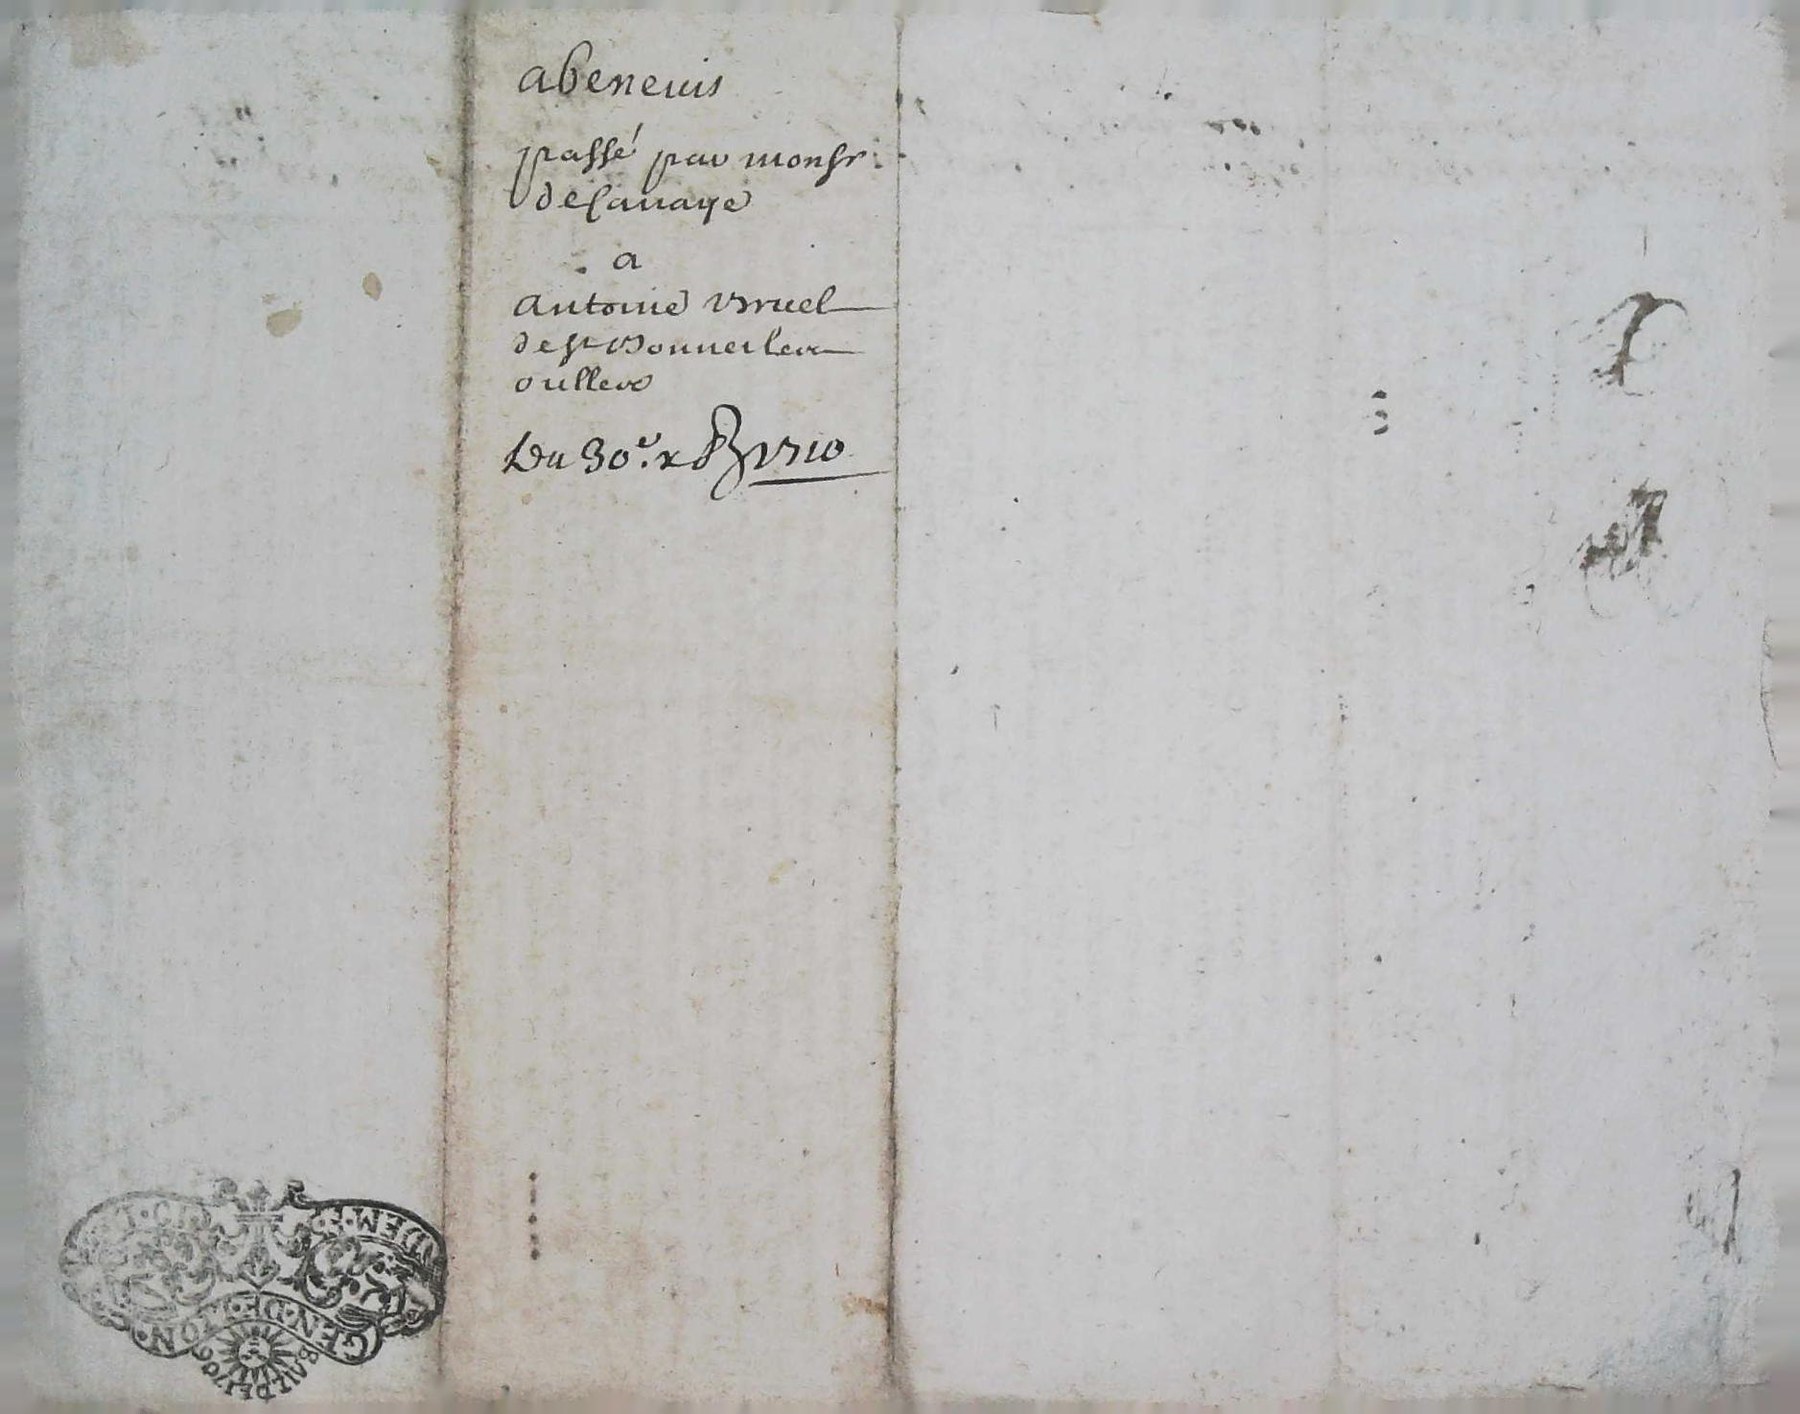 abenevis
passé par monsr.
de Savaye
a
antoine Bruel
de st Bonnet les
oulles
Du 30e. xbr 1710
GEN·DE·LYON·
BAIL DE 1706